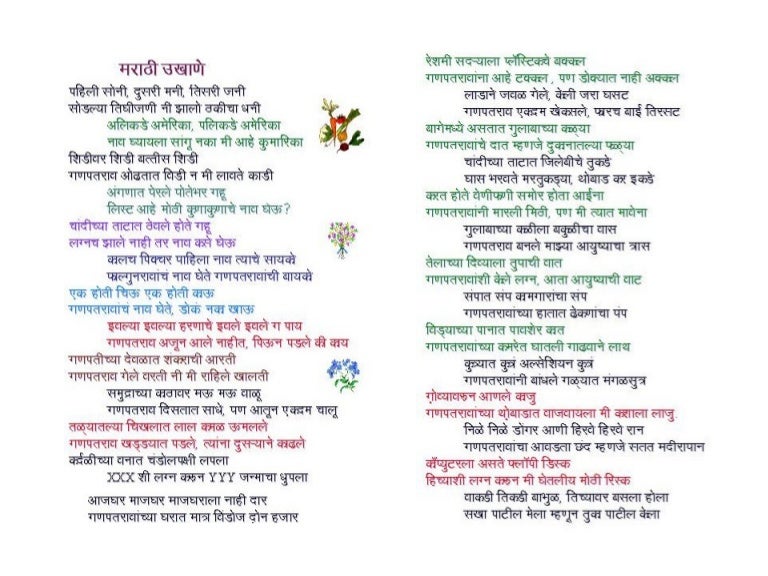 मराठी उखाणे
पहिली सोनी, दुसरी मनी, तिसरी जनी
सोडल्या तिघीजणी नी झालो ठकीचा धनी
अलिकडे अमेरिका, पलिकडे अमेरिका
नाव घ्यायला सांगू नका मी आहे कुमारिका
शिडीवर शिडी बत्तीस शिडी
गणपतराव ओढतात विडी न मी लावते काडी
अंगणात पेरले पोतेभर गहू
लिस्ट आहे मोठी कुणाकुणाचे नाव घेऊ?
चांदीच्या ताटात ठेवले होते गहू
लग्नच झाले नाही तर नाव कसे घेऊ
कालच पिक्चर पाहिला नाव त्याचे सायको
फाल्गुनरावांचं नाव घेते गणपतरावांची बायको
एक होती चिऊ एक होती काऊ
गणपतरावांचं नाव घेते, डोकं नका खाऊ
इवल्या इवल्या हरणाचे इवले इवले ग पाय
गणपतराव अजून आले नाहीत, पिऊन पडले की काय
गणपतीच्या देवळात शंकराची आरती
गणपतराव गेले वरती नी मी राहिले खालती
समुद्राच्या काठावर मऊ मऊ वाळू
गणपतराव दिसतात साधे, पण आतून एकदम चालू
तळ्यातल्या चिखलात लाल कमळ ऊमलले
गणपतराव खड्ड्यात पडले, त्यांना दुसऱ्याने काढले
कर्दळीच्या वनात चंडोलपक्षी लपला
XXX शी लग्न करून YYY जन्माचा धुपला
आजघर माजघर माजघराला नाही दार
गणपतरावांच्या घरात मात्र विंडोज दोन हजार
रेशमी सदऱ्याला प्लॅस्टिकचे बक्कल
गणपतरावांना आहे टक्कल, पण डोक्यात नाही अक्कल
लाडाने जवळ गेले, केली जरा घसट
गणपतराव एकदम खेकसले, फारच बाई तिरसट
बागेमध्ये असतात गुलाबाच्या कळ्या
गणपतरावांचे दात म्हणजे दुकानातल्या फळ्या
चांदीच्या ताटात जिलेबीचे तुकडे
घास भरवते मरतुकड्या, थोबाड कर इकडे
करत होते वेणीफणी समोर होता आईना
गणपतरावांनी मारली मिठी, पण मी त्यात मावेना
गुलाबाच्या कळीला बकुळीचा वास
गणपतराव बनले माझ्या आयुष्याचा त्रास
तेलाच्या दिव्याला तुपाची वात
गणपतरावांशी केले लग्न, आता आयुष्याची वाट
संपात संप कामगारांचा संप
गणपतरावांच्या हातात ढेकणांचा पंप
विड्याच्या पानात पावशेर कात
गणपतरावांच्या कमरेत घातली गाढवाने लाथ
कुत्र्यात कुत्रं अल्सेशियन कुत्रं
गणपतरावांनी बांधले गळ्यात मंगळसुत्र
गोव्यावरुन आणले काजु
गणपतरावांच्या थोबाडात वाजवायला मी कशाला लाजु
निळे निळे डोंगर आणी हिरवे हिरवे रान
गणपतरावांचा आवडता छंद म्हणजे सतत मदीरापान
कॅंप्युटरला असते फ्लॉपी डिस्क
हिच्याशी लग्न करून मी घेतलीय मोठी रिस्क
वाकडी तिकडी बाभुळ, तिच्यावर बसला होला
सखा पाटील मेला म्हणून तुका पाटील केला